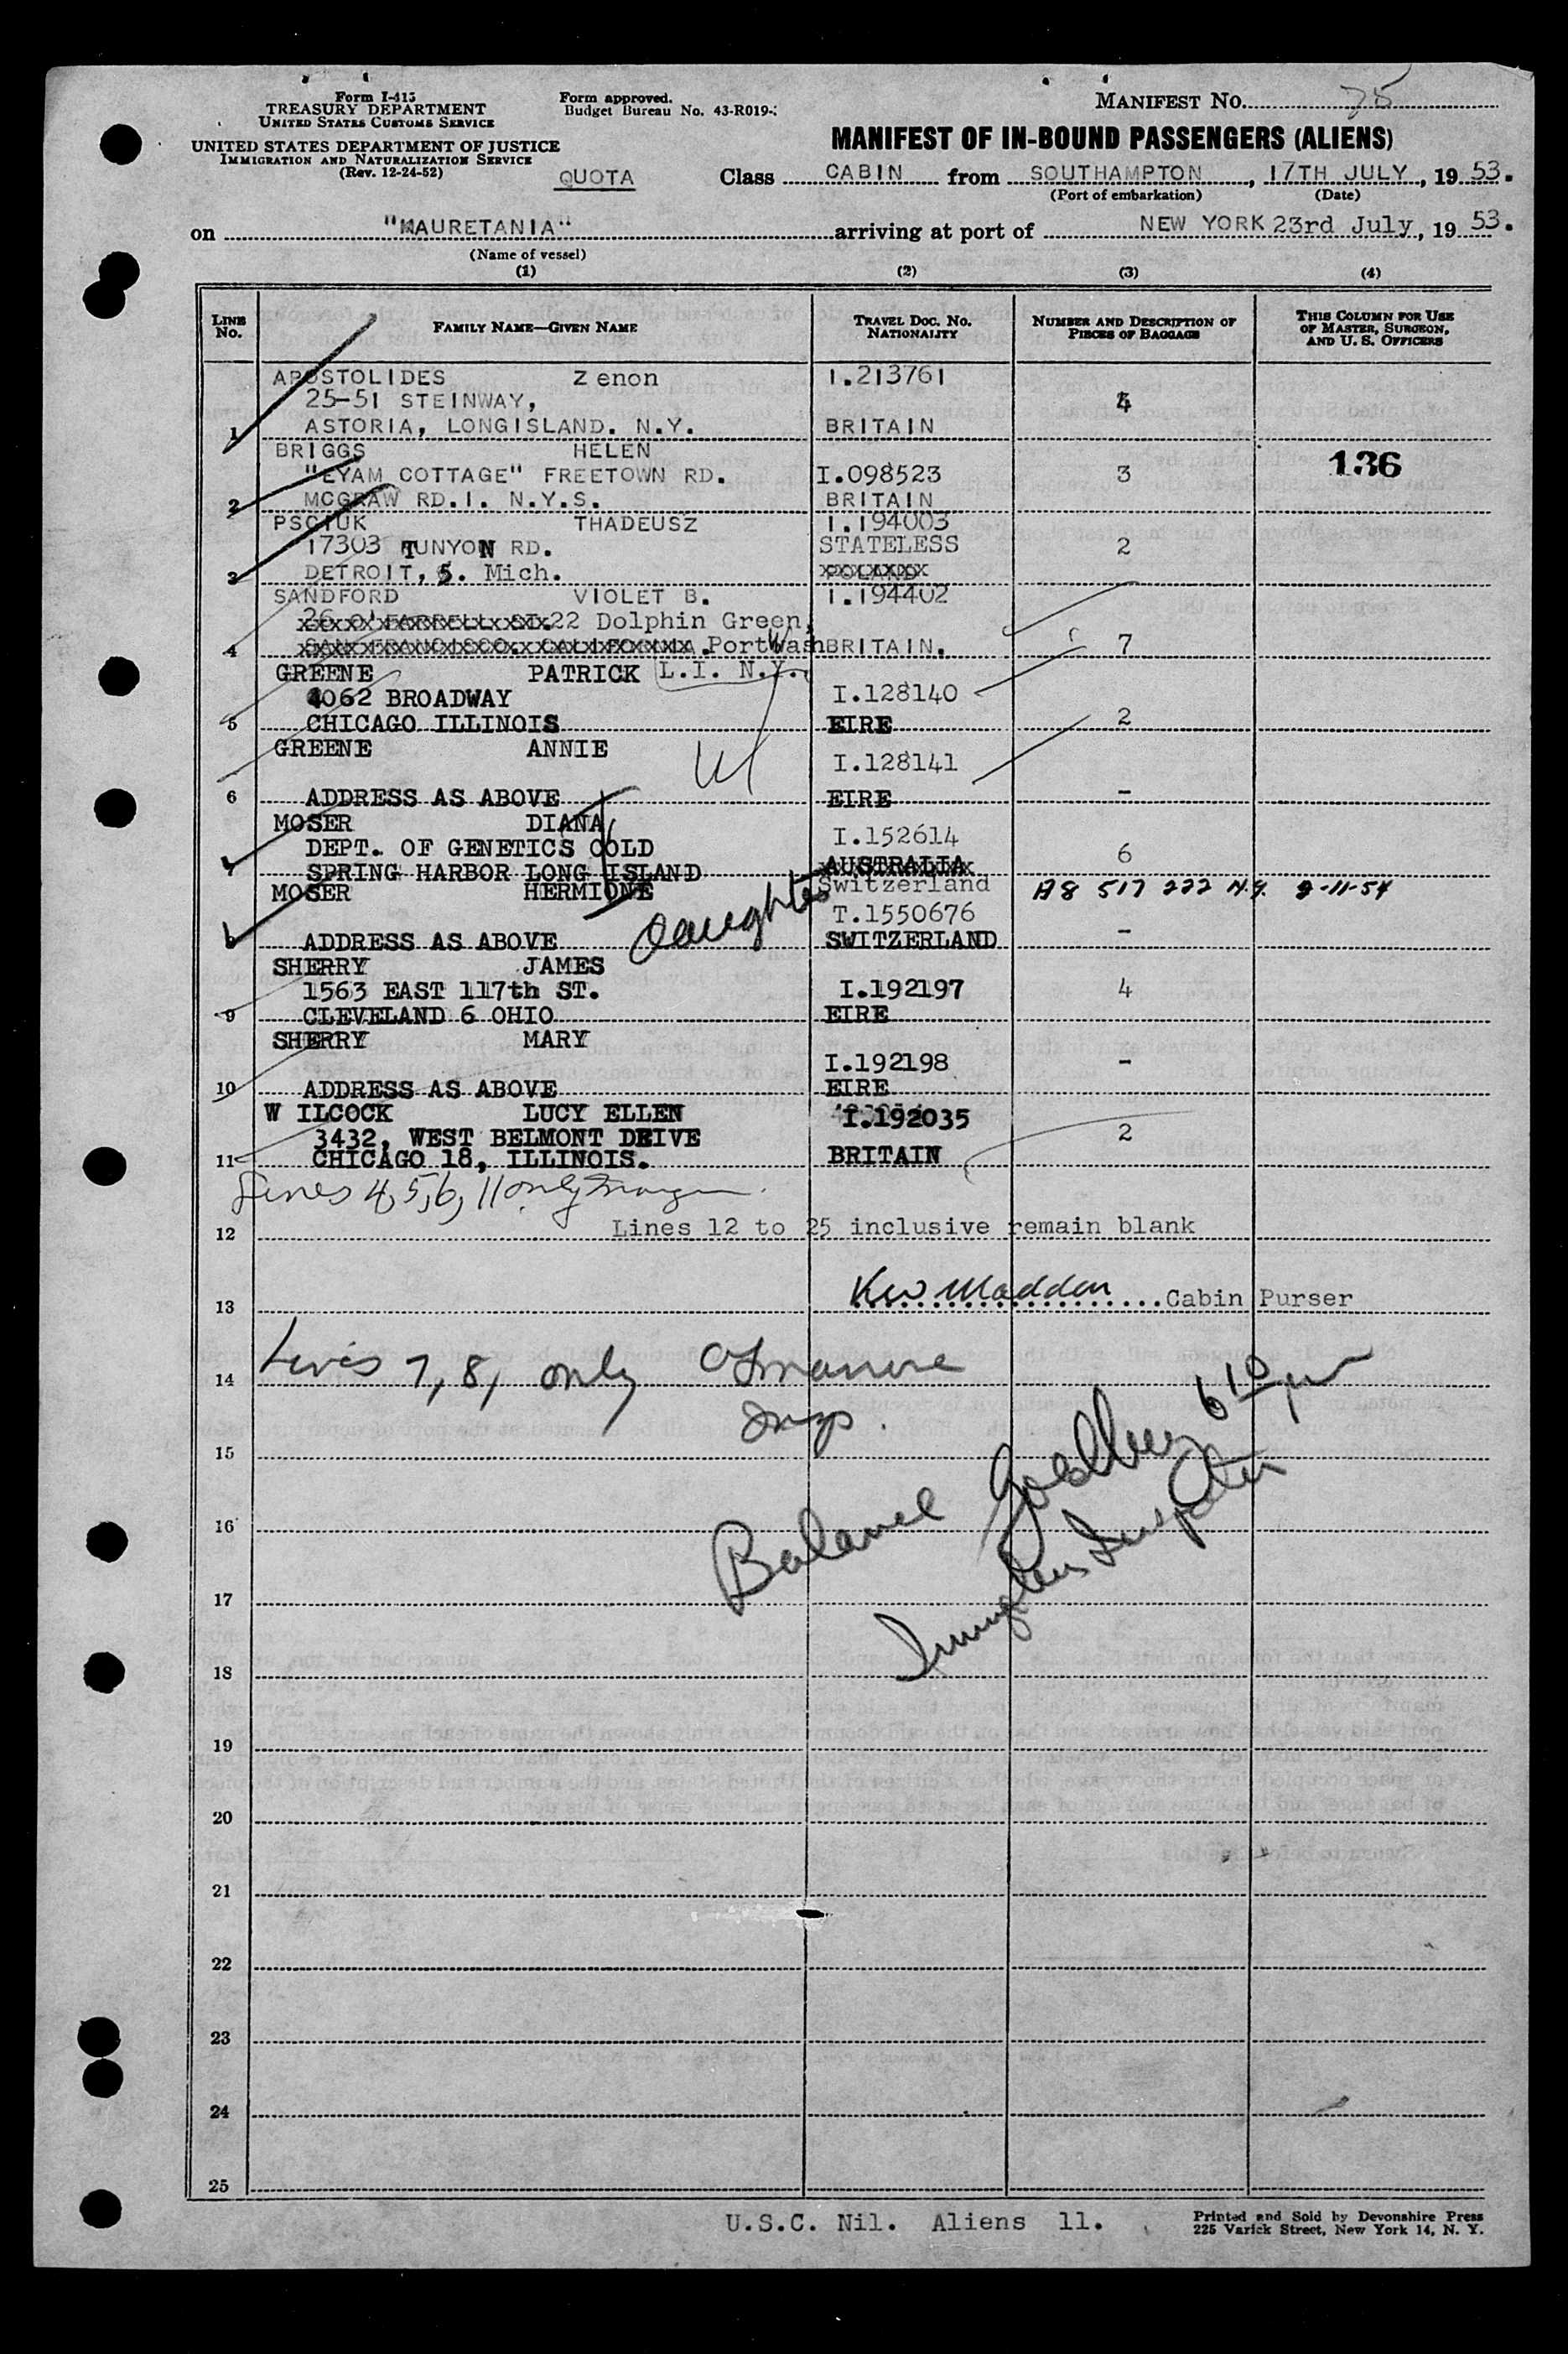 Form I-415
TREASURY DEPARTMENT
UNITED STATES CUSTOMS SERVICE
UNITED STATES DEPARTMENT OF JUSTICE
IMMIGRATION AND NATURALIZATION SERVICE
(Rev. 12-24-52)
Form approved.
Budget Bureau No. 43-R019-
MANIFEST No. 75
MANIFEST OF IN-BOUND PASSENGERS (ALIENS)
QUOTA Class CABIN from SOUTHAMPTON, 17TH JULY, 19 53.
(Port of embarkation) (Date)
on "MAURETANIA" arriving at port of NEW YORK 23rd July, 19 53.
(Name of vessel)
(1) (2) (3) (4)
LINE No. FAMILY NAME—GIVEN NAME TRAVEL DOC. NO. NATIONALITY NUMBER AND DESCRIPTION OF PIECES OF BAGGAGE THIS COLUMN FOR USE OF MASTER, SURGEON, AND U. S. OFFICERS
APOSTOLIDES Zenon I.213761
25-51 STEINWAY,
1 ASTORIA, LONGISLAND. N.Y. BRITAIN
BRIGGS HELEN
"EYAM COTTAGE" FREETOWN RD. I.098523 3 136
2 MCGRAW RD.I. N.Y.S. BRITAIN
PSCIUK THADEUSZ I.194003
17303 TUNYON RD. STATELESS 2
3 DETROIT, 5. Mich. POLAND
SANDFORD VIOLET B. I.194402
26 O'FARRELL ST. 22 Dolphin Green,
4 SAN FRANCISCO. CALIFORNIA. Port Wash BRITAIN. 7
GREENE PATRICK L.I. N.Y.
4062 BROADWAY I.128140
5 CHICAGO ILLINOIS EIRE 2
GREENE ANNIE
I.128141
6 ADDRESS AS ABOVE EIRE -
MOSER DIANA
DEPT. OF GENETICS COLD I.152614 6
7 SPRING HARBOR LONG ISLAND AUSTRALIA
Switzerland
MOSER HERMIONE A8 517 222 N.Y. 2-11-54
Daughter T.1550676
8 ADDRESS AS ABOVE SWITZERLAND -
SHERRY JAMES
1563 EAST 117th ST. I.192197 4
9 CLEVELAND 6 OHIO EIRE
SHERRY MARY
I.192198 -
10 ADDRESS AS ABOVE EIRE
W ILCOCK LUCY ELLEN I.192035
3432, WEST BELMONT DEIVE 2
11 CHICAGO 18, ILLINOIS. BRITAIN
Lines 4, 5, 6, 11 only
12 Lines 12 to 25 inclusive remain blank
13 KW Madden Cabin Purser
14 Lines 7, 8, only
Insp.
15
Balance Goldberg 6 10 pm
Immigrant Inspector
16
17
18
19
20
21
22
23
24
25
U.S.C. Nil. Aliens 11.
Printed and Sold by Devonshire Press
225 Varick Street, New York 14, N. Y.